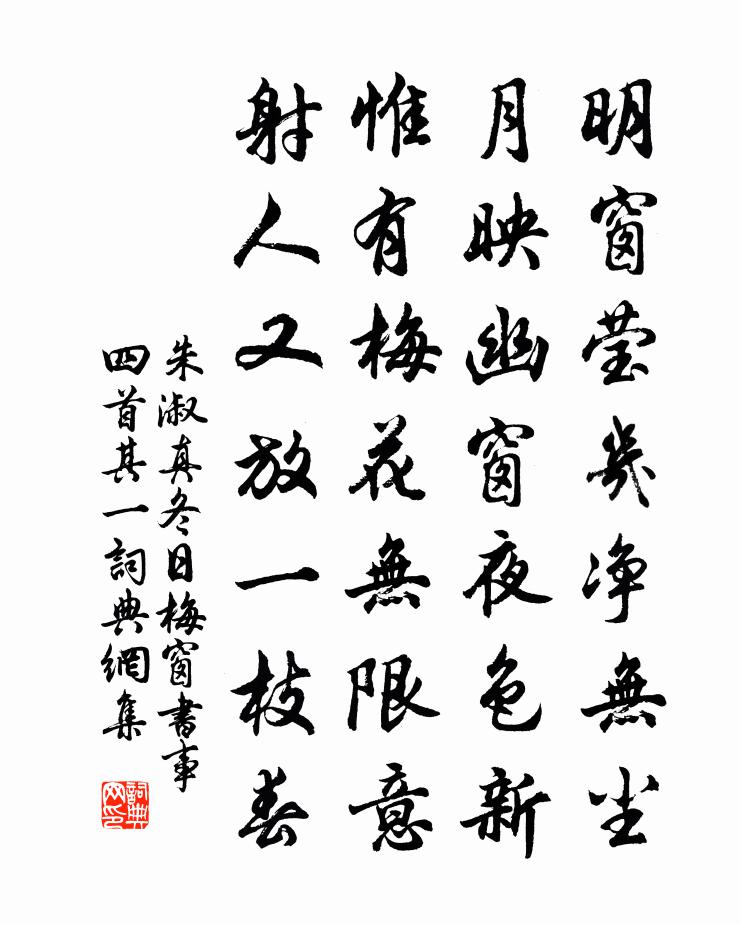 明窗莹几净無尘
月映幽窗夜色新
惟有梅花無限意
射人又放一枝春
朱淑真冬日梅窗書事
四首其一詞典網集
詞典
网印